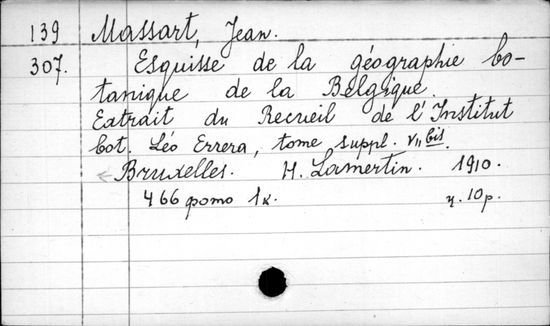 139 Massart, Jean.
307. Esquisse de la géographie bo-
tanique de la Belgique.
Extrait du Recueil de l'Institut
bot. Léo Errera, tome suppl. VII bis.
Bruxelles. H. Lamertin. 1910.
466 фото 1к. ц. 10р.